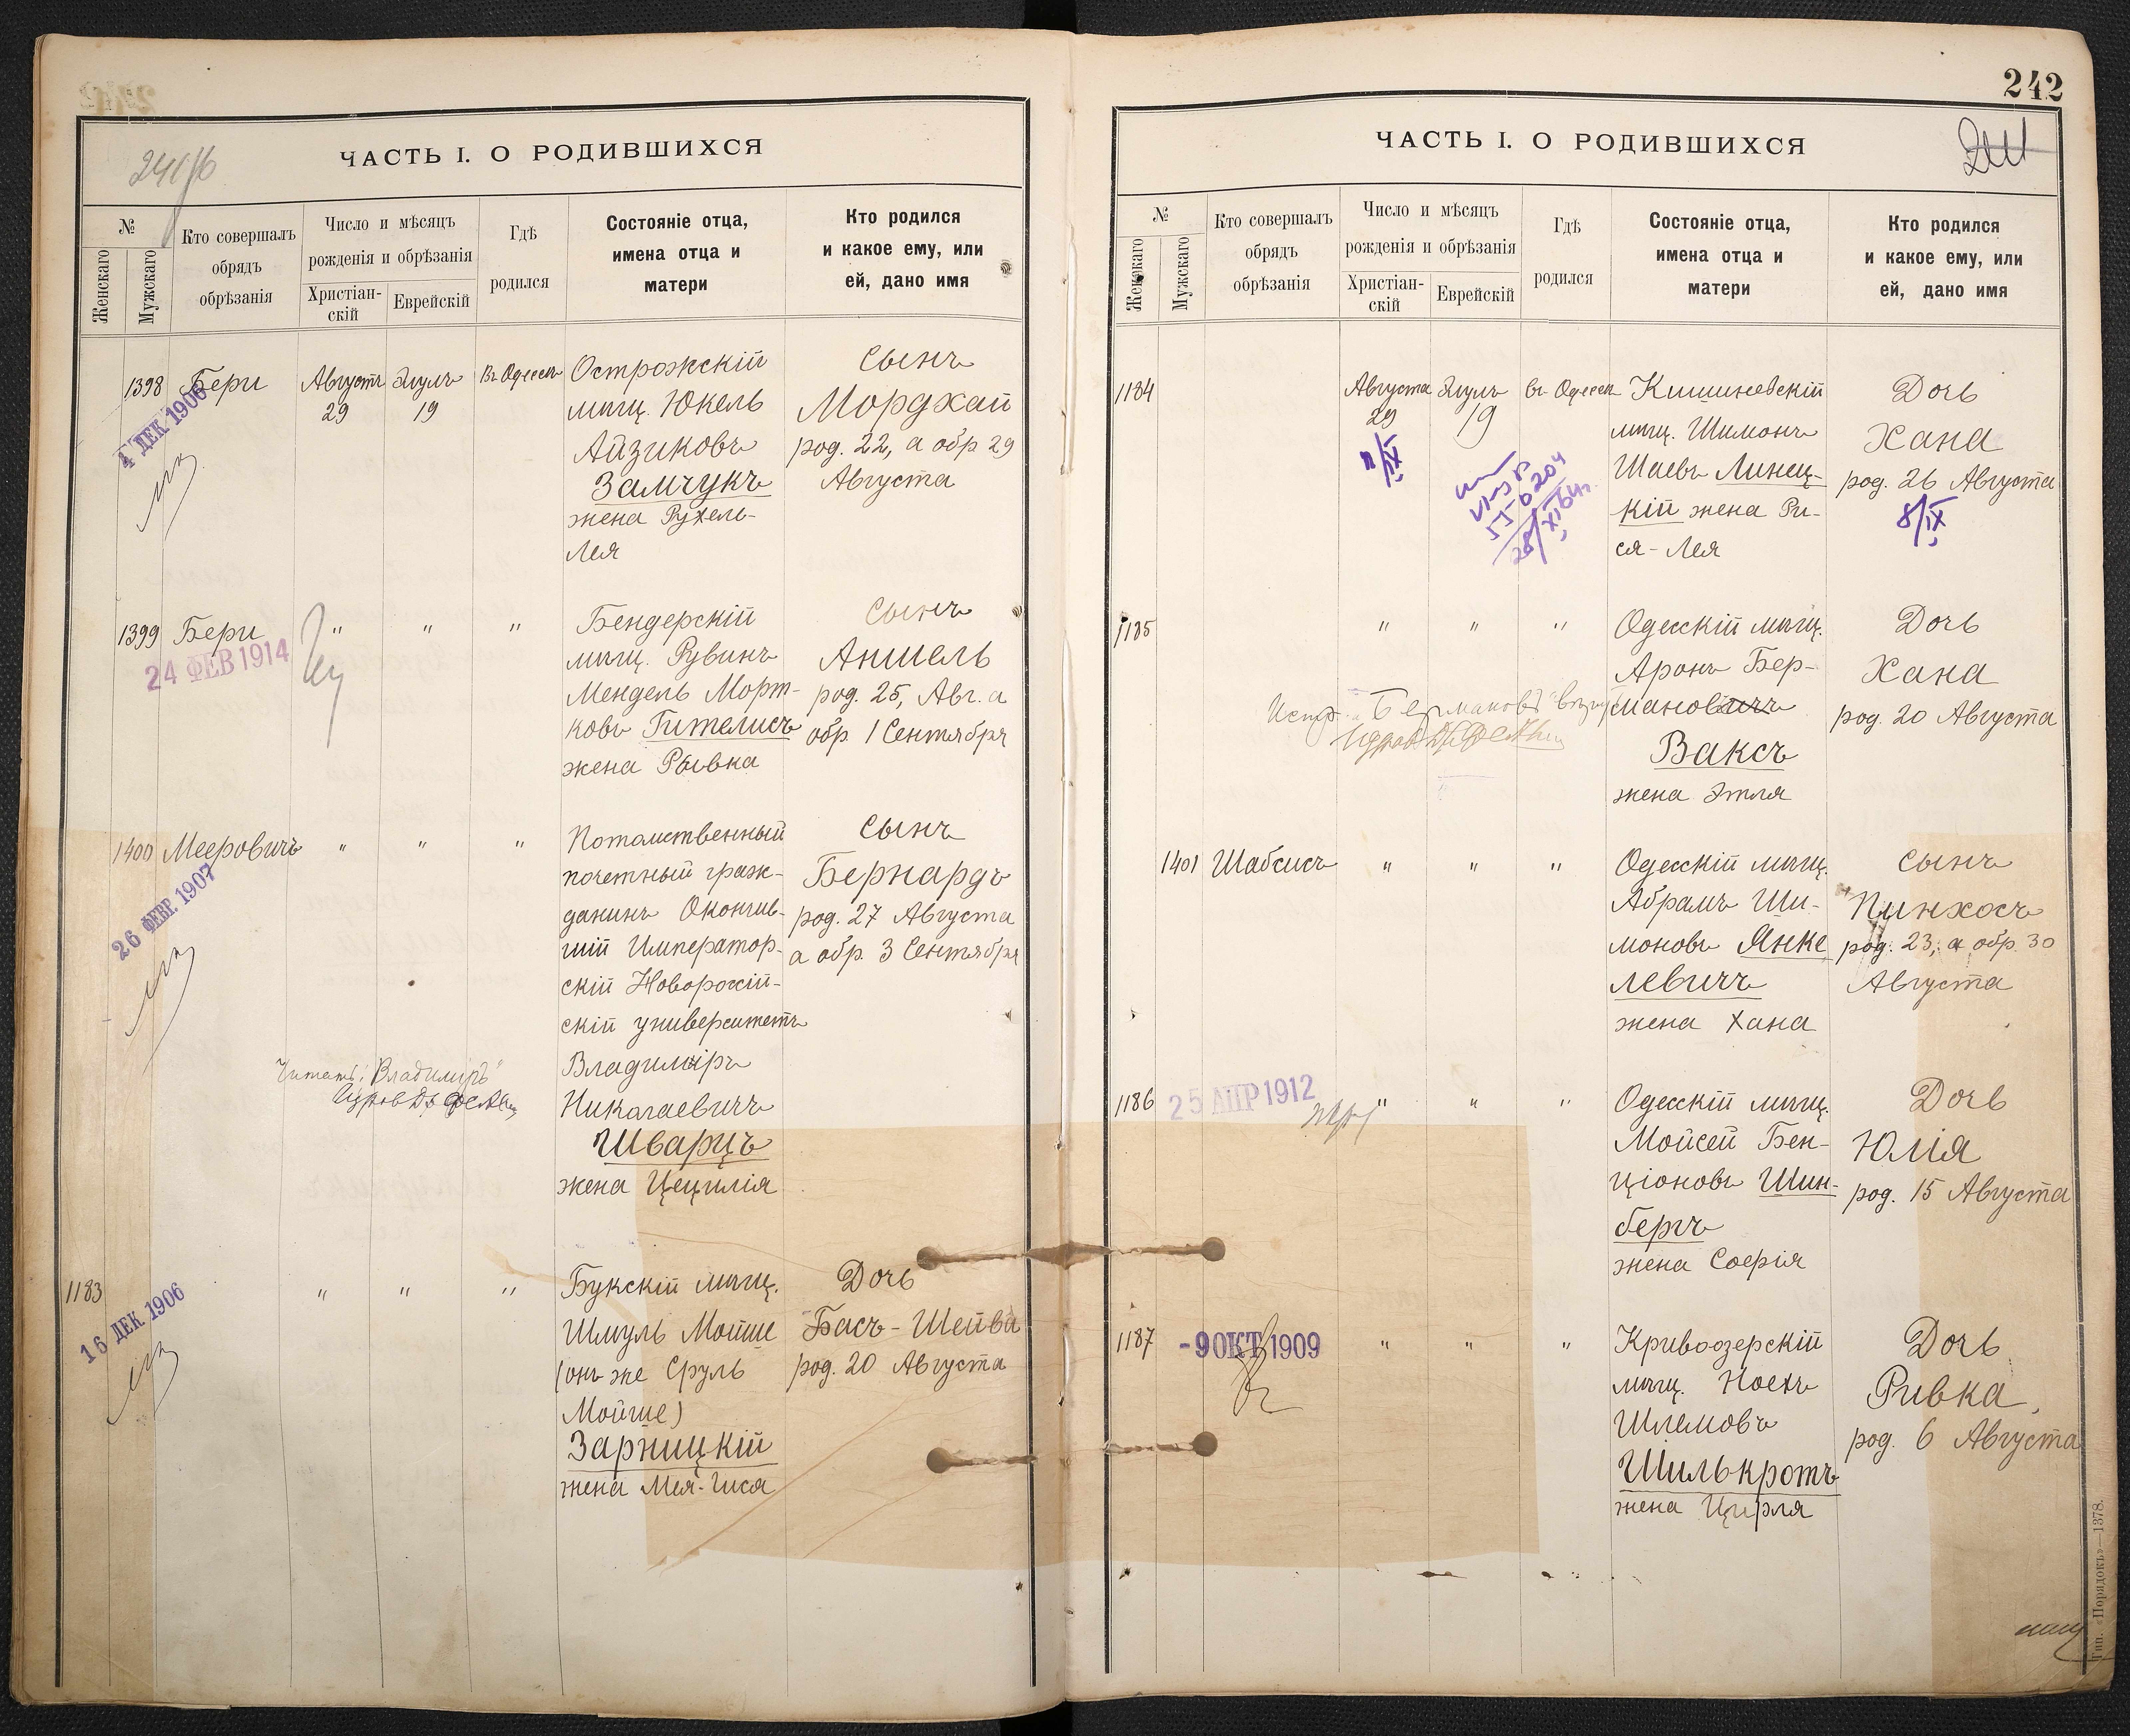 ЧАСТЬ I. О РОДИВШИХСЯ
№
Женскаго
Мужскаго
Кто совершалъ
обрядъ
обрѣзанія
Число и мѣсяцъ
рожденія и обрѣзанія
Христіан-
скій
Еврейскій
Гдѣ
родился
Состояніе отца,
имена отца и
матери
Кто родился
и какое ему, или
ей, дано имя
1398
Бери
Августъ
29
Элулъ
19
Въ Одессѣ
Острожскій
мѣщ. Юкель
Айзиковъ
Замчукъ
жена Рухель-
Лея
Сынъ
Мордхай
род. 22, а обр 29
Августа
4 ДЕК 1906
1399
Бери
"
"
"
Бендерскій
мѣщ. Рувинъ
Мендель Морт-
ковъ Гителисъ
жена Рывка
Сынъ
Аншель
род. 25, Авг. а
обр. 1 Сентября
24 ФЕВ 1914
1400
Мееровичъ
"
"
"
Потомственный
почетный граж-
данинъ Окончив-
шій Император-
скій Новороссій-
скій университетъ
Владиміръ
Николаевичъ
Шварцъ
жена Цецилія
Сынъ
Бернардъ
род. 27 Августа
а обр. 3 Сентября
26 ФЕВР. 1907
Читать: "Владиміръ"
1183
"
"
"
Букскій мѣщ.
Шмуль Мойше
(онъ же Сруль
Мойше)
Зарницкій
жена Мея-Чиса
Дочь
Бася-Шейва
род. 20 Августа
16 ДЕК 1906
242
ЧАСТЬ I. О РОДИВШИХСЯ
№
Женскаго
Мужскаго
Кто совершалъ
обрядъ
обрѣзанія
Число и мѣсяцъ
рожденія и обрѣзанія
Христіан-
скій
Еврейскій
Гдѣ
родился
Состояніе отца,
имена отца и
матери
Кто родился
и какое ему, или
ей, дано имя
1184
Августа
29
Элулъ
19
въ Одессѣ
Кишиневскій
мѣщ. Шимонъ
Шаевъ Линец-
кій жена Ри-
ся-Лея
Дочь
Хана
род. 26 Августа
8/IX
1185
"
"
"
Одесскій мѣщ.
Аронъ Бер-
мановичъ
Ваксъ
жена Этля
Дочь
Хана
род. 20 Августа
Испр. "Бермановъ"
1401
Шабсисъ
"
"
"
Одесскій мѣщ.
Абрамъ Ши-
моновъ Янке
левичъ
жена Хана
Сынъ
Пинхосъ
род. 23, а обр. 30
Августа
1186
25 АПР 1912
"
"
"
Одесскій мѣщ.
Мойсей Бен-
ціоновъ Шин-
бергъ
жена Софія
Дочь
Юлія
род. 15 Августа
1187
-9 ОКТ 1909
"
"
"
Кривоозерскій
мѣщ. Ноехъ
Шлемовъ
Шилькротъ
жена Цирля
Дочь
Ривка
род. 6 Августа
Тип. «Порядокъ»—1378.